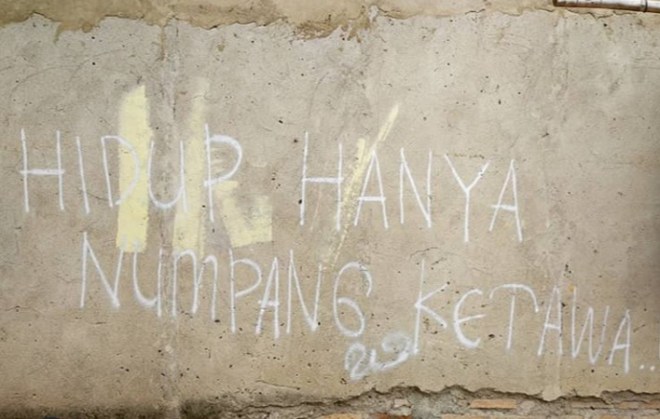 HIDUP HANYA
NUMPANG KETAWA..